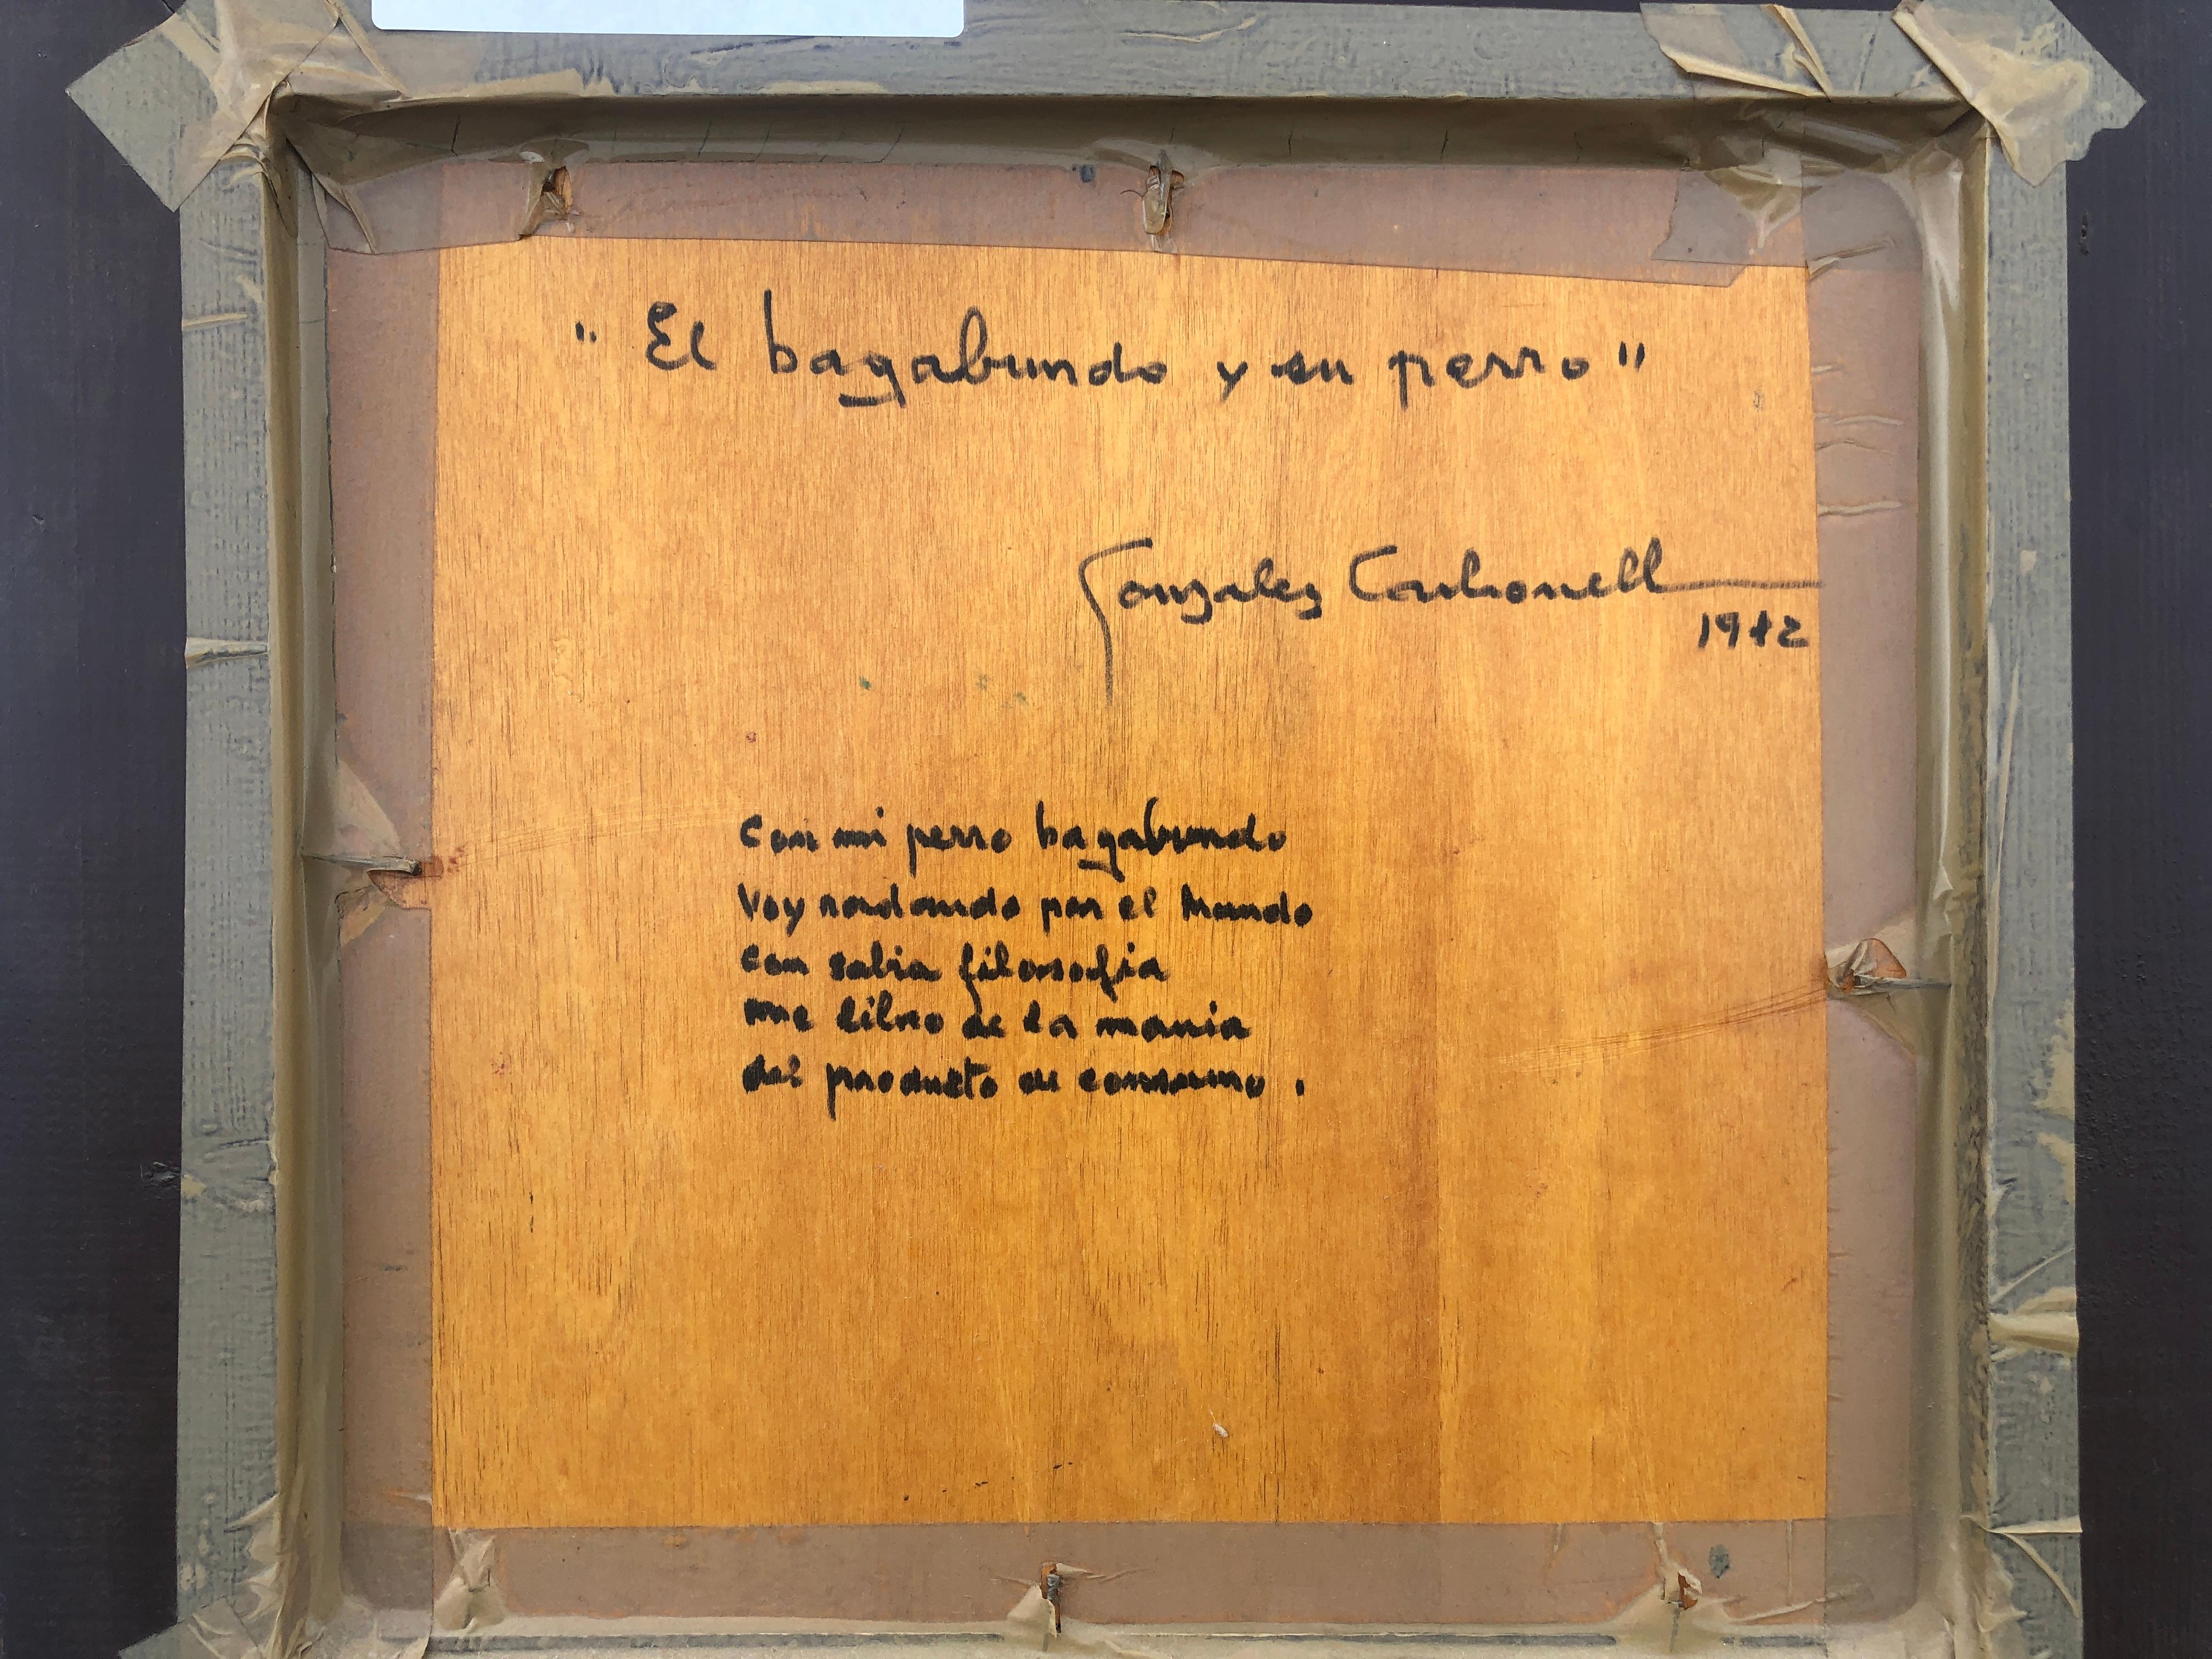 "El bagabundo y su perro"
Gonzales Carbonell
1972
Con mi perro bagabundo
Voy rondando por el Mundo
Con sabia filosofia
me libro de la mania
del producto de consumo.